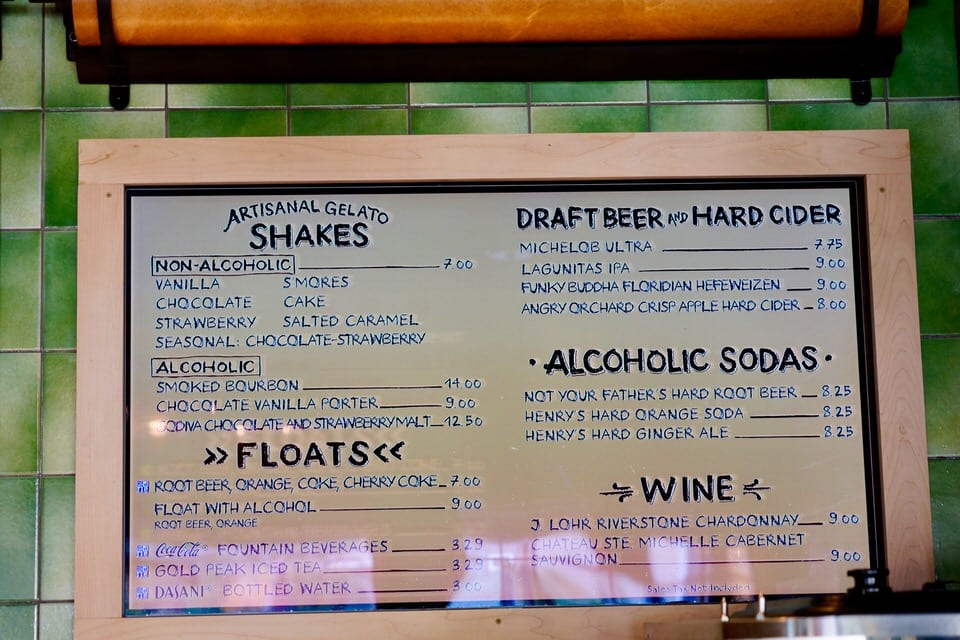 ARTISANAL GELATO
SHAKES
NON-ALCOHOLIC 7.00
VANILLA S'MORES
CHOCOLATE CAKE
STRAWBERRY SALTED CARAMEL
SEASONAL: CHOCOLATE-STRAWBERRY
ALCOHOLIC
SMOKED BOURBON 14.00
CHOCOLATE VANILLA PORTER 9.00
GODIVA CHOCOLATE AND STRAWBERRY MALT 12.50
»FLOATS«
ROOT BEER, ORANGE, COKE, CHERRY COKE 7.00
FLOAT WITH ALCOHOL 9.00
ROOT BEER, ORANGE
Coca-Cola® FOUNTAIN BEVERAGES 3.29
GOLD PEAK ICED TEA 3.29
DASANI® BOTTLED WATER 3.00
DRAFT BEER AND HARD CIDER
MICHELOB ULTRA 7.75
LAGUNITAS IPA 9.00
FUNKY BUDDHA FLORIDIAN HEFEWEIZEN 9.00
ANGRY ORCHARD CRISP APPLE HARD CIDER 8.00
• ALCOHOLIC SODAS •
NOT YOUR FATHER'S HARD ROOT BEER 8.25
HENRY'S HARD ORANGE SODA 8.25
HENRY'S HARD GINGER ALE 8.25
WINE
J. LOHR RIVERSTONE CHARDONNAY 9.00
CHATEAU STE. MICHELLE CABERNET
SAUVIGNON 9.00
Sales Tax Not Included